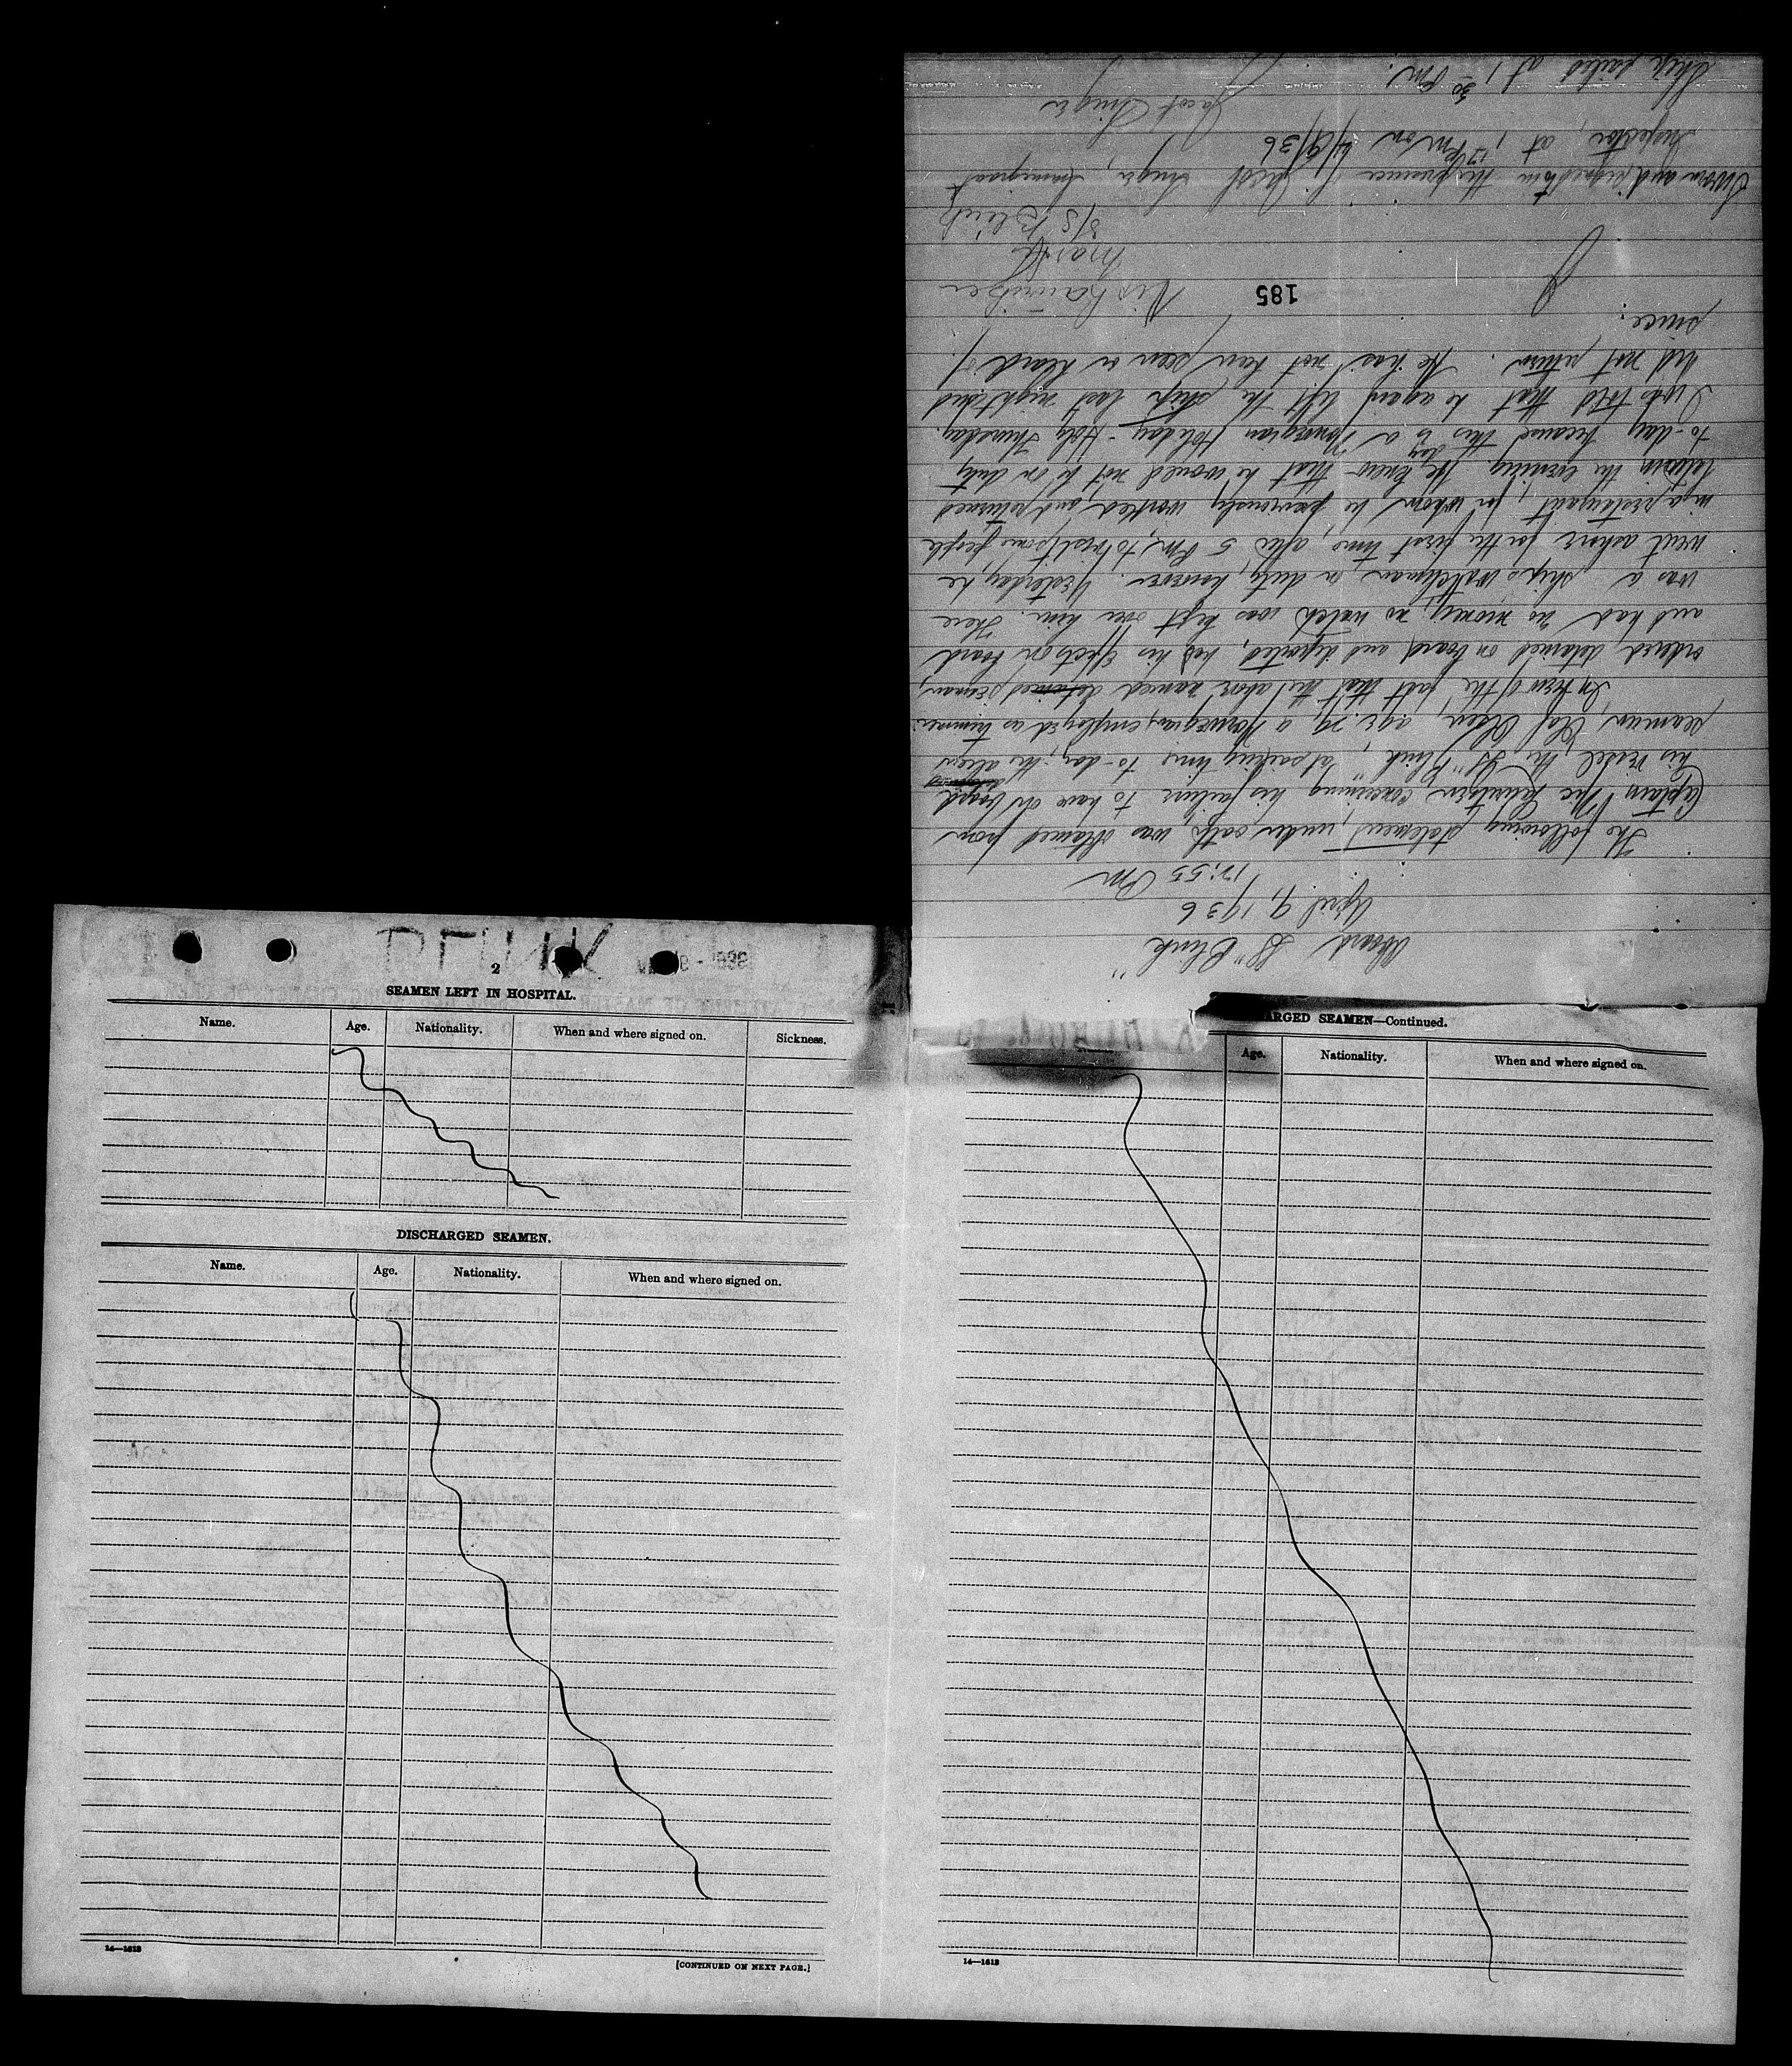 Aboard SS "Blink"
April 9, 1936
12:55 PM
The following statement, under oath, was obtained from
Captain Nis Lauritzen concerning his failure to have on board
his vessel, the SS "Blink", at sailing time to-day, the alien
seaman Olaf Olsen, age 29, a Norwegian, employed as trimmer.
In view of the fact that the above named detained seaman,
ordered detained on board and deported, had his effects on board
and had no money, no watch was kept over him. There
was a ship's watchman on duty, however. Yesterday, he
went ashore for the first time, after 5 PM, to visit some people
in a restaurant, for whom he previously worked, and returned
later in the evening. He knew that he would not be on duty
to-day because this day is a Norwegian Holiday - Holy Thursday.
I was told that he again left the ship last night and
did not return. He has not been seen or heard of
since.
185
Nis Lauritzen
Master
S/S Blink
Sworn and signed in the presence of Jacob Singer, Immigrant
Inspector, at 1 PM on 4/9/36
Jacob Singer
Ship sailed at 1 30 PM.
BLINK
2
SEAMEN LEFT IN HOSPITAL.
Name. Age. Nationality. When and where signed on. Sickness.
DISCHARGED SEAMEN.
Name. Age. Nationality. When and where signed on.
14—1613
[CONTINUED ON NEXT PAGE.]
ARGED SEAMEN—Continued.
Age. Nationality. When and where signed on.
14—1613